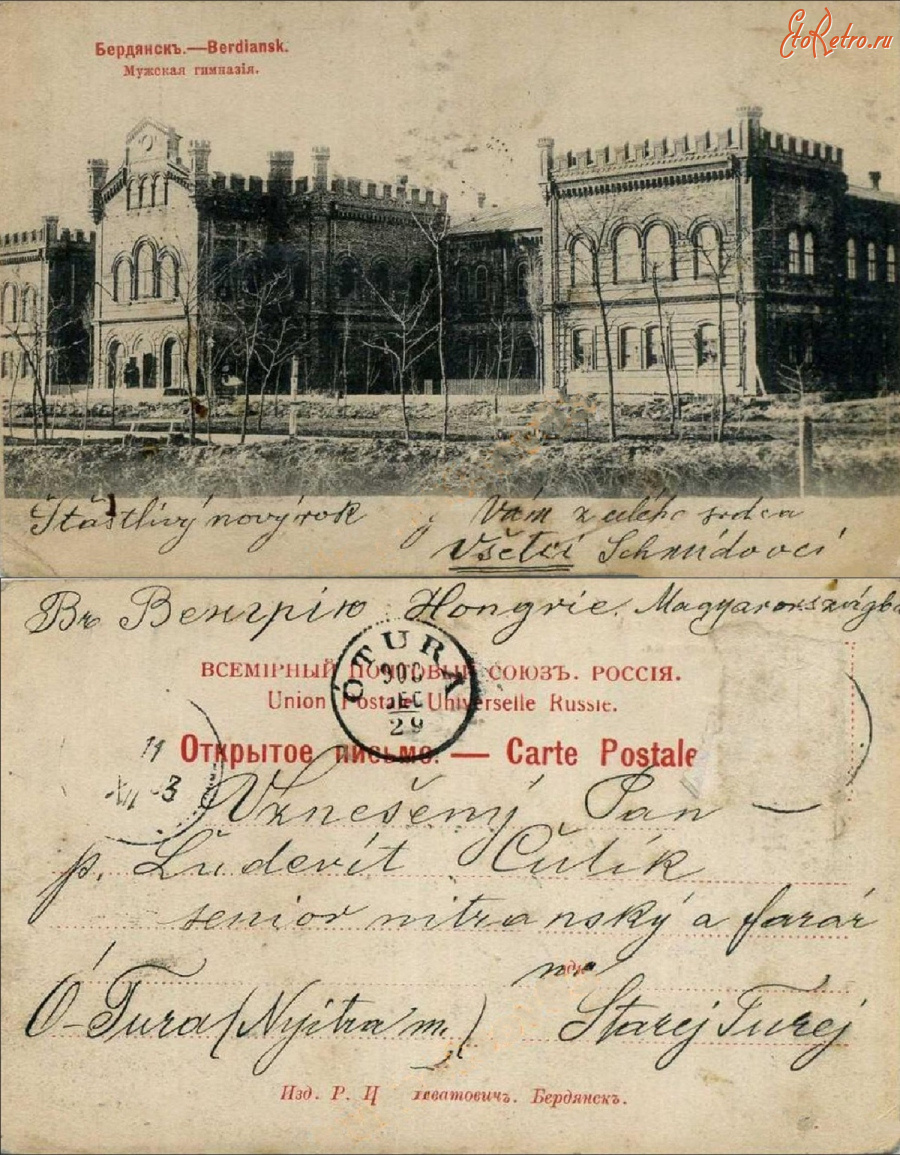 EtoRetro.ru
Бердянскъ.—Berdiansk.
Мужская гимназія.
Štăstlivý nový rok Vám z celého srdca
Všetci Schmidovci
Въ Венгрію Hongrie. Magyarországba
ÓTURA
900
DEC
29
ВСЕМІРНЫЙ ПОЧТОВЫЙ СОЮЗЪ. РОССІЯ.
Union Postale Universelle Russie.
11
XII 3
Открытое письмо. — Carte Postale
Vznešený Pan
p. Ľudevít Čulík
senior nitranský a farár
na
Ó-Tura (Nyitra m.) Starej Turej
Изд. Р. Бердянскъ.